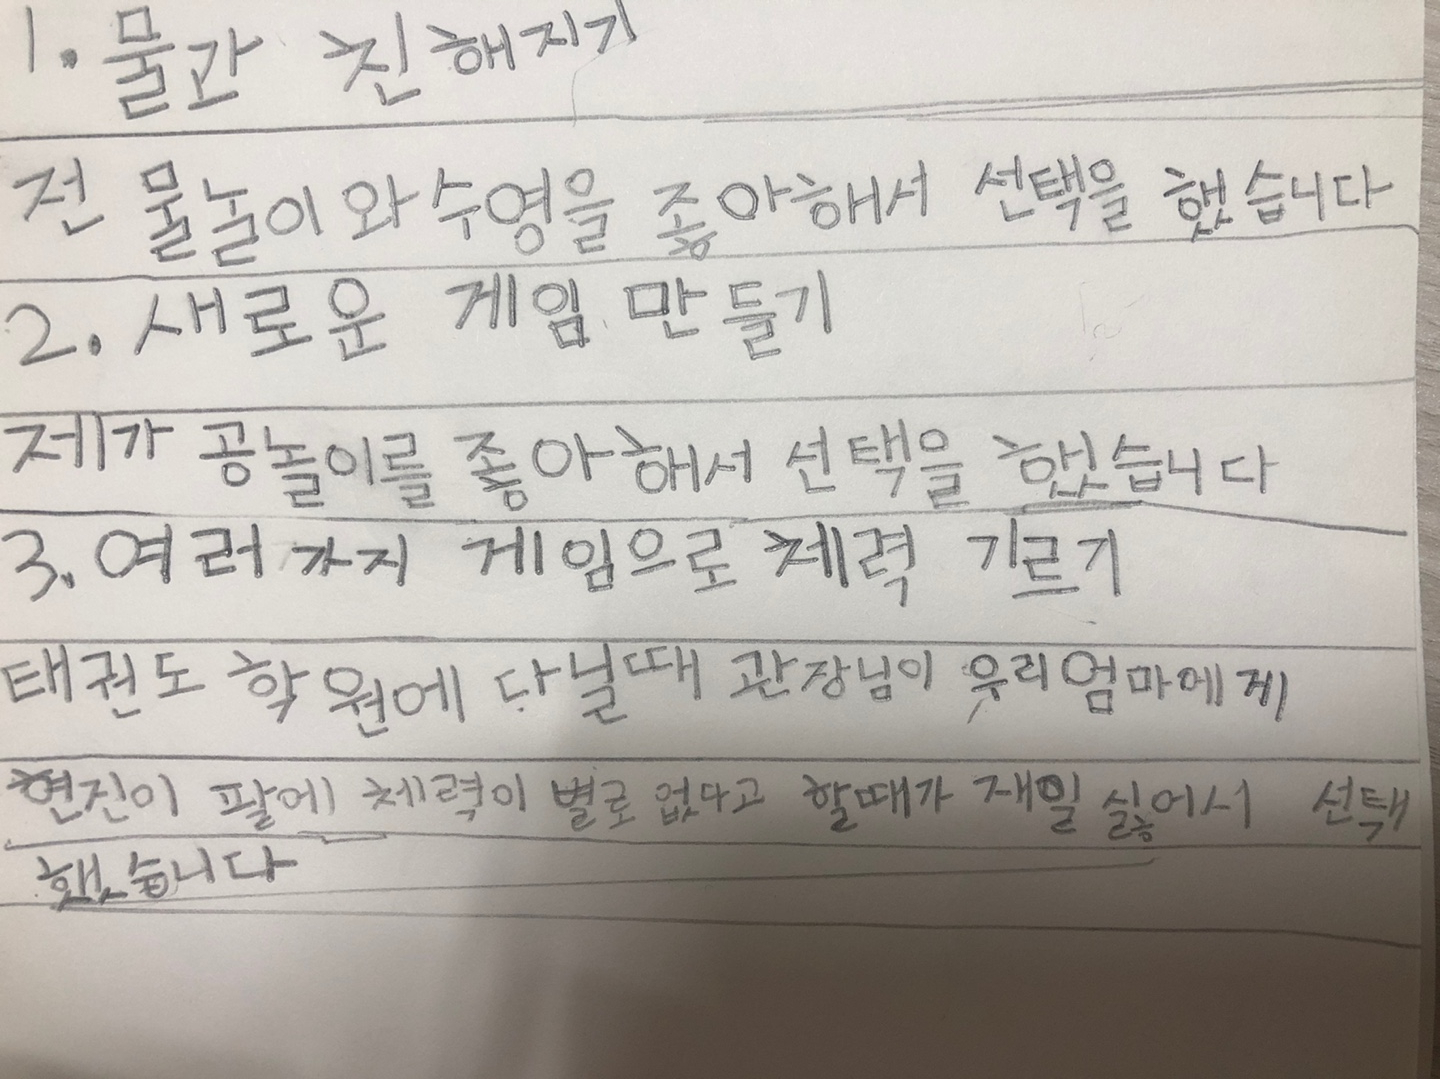 1. 물과 친해지기
전 물놀이와 수영을 좋아해서 선택을 했습니다
2. 새로운 게임 만들기
제가 공놀이를 좋아해서 선택을 했습니다
3. 여러가지 게임으로 체력 기르기
태권도 학원에 다닐때 관장님이 우리엄마에게
현진이 팔에 체력이 별로 없다고 할때가 재일 싫어서 선택
했습니다